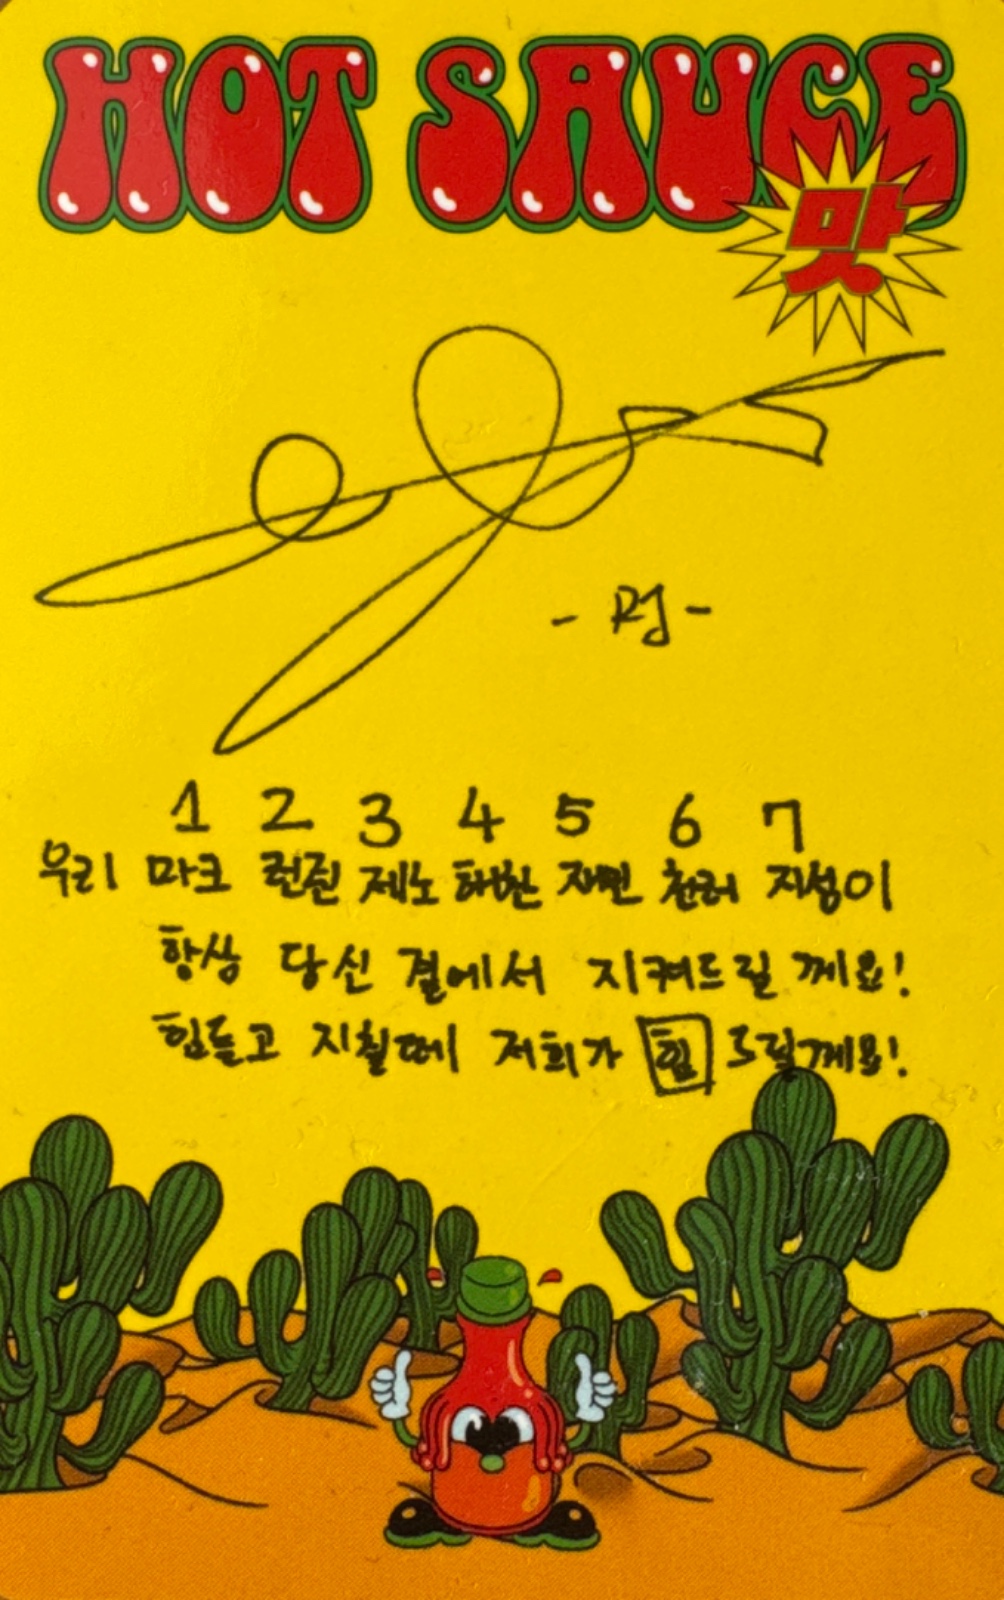 HOT SAUCE
맛
- RJ -
1 2 3 4 5 6 7
우리 마크 런쥔 제노 해찬 재민 천러 지성이
항상 당신 곁에서 지켜드릴 께요!
힘들고 지칠때 저희가 힘 드릴께요!